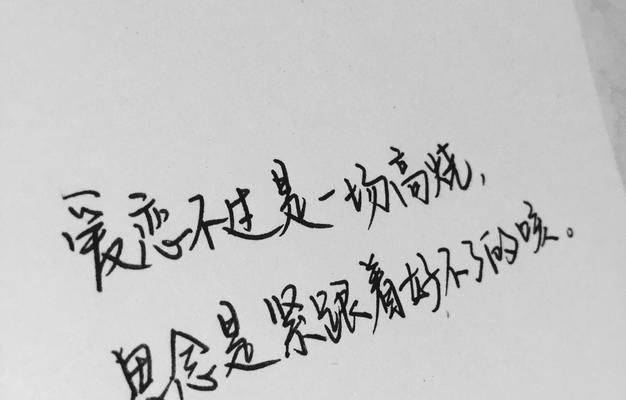 爱恋不过是一场高烧，
思念是紧跟着好不了的咳。